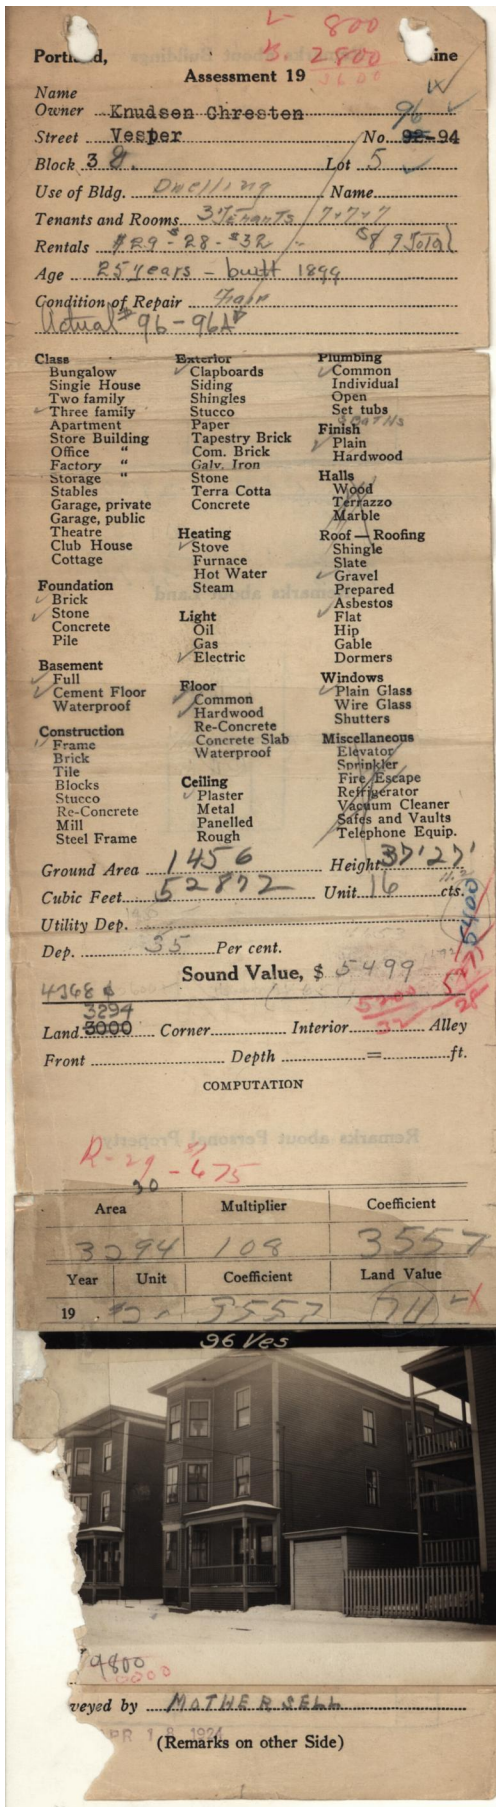 L- 800
B 2800
3600
Portland, Maine
Assessment 19
Name
Owner Knudsen Chresten 96
Street Vesper No. 92-94
Block 38. Lot 5
Use of Bldg. Dwelling Name
Tenants and Rooms 3 Tenants 7+7+7
Rentals $29-$28-$32 $89 Total
Age 25 years - built 1899
Condition of Repair Fair
Actual # 96-96A
Class
Bungalow
Single House
Two family
Three family
Apartment
Store Building
Office "
Factory "
Storage "
Stables
Garage, private
Garage, public
Theatre
Club House
Cottage
Foundation
Brick
Stone
Concrete
Pile
Basement
Full
Cement Floor
Waterproof
Construction
Frame
Brick
Tile
Blocks
Stucco
Re-Concrete
Mill
Steel Frame
Exterior
Clapboards
Siding
Shingles
Stucco
Paper
Tapestry Brick
Com. Brick
Galv. Iron
Stone
Terra Cotta
Concrete
Heating
Stove
Furnace
Hot Water
Steam
Light
Oil
Gas
Electric
Floor
Common
Hardwood
Re-Concrete
Concrete Slab
Waterproof
Ceiling
Plaster
Metal
Panelled
Rough
Plumbing
Common
Individual
Open
Set tubs
3 Baths
Finish
Plain
Hardwood
Halls
Wood
Terrazzo
Marble
Roof — Roofing
Shingle
Slate
Gravel
Prepared
Asbestos
Flat
Hip
Gable
Dormers
Windows
Plain Glass
Wire Glass
Shutters
Miscellaneous
Elevator
Sprinkler
Fire Escape
Refrigerator
Vacuum Cleaner
Safes and Vaults
Telephone Equip.
Ground Area 1456 Height 37' 27'
Cubic Feet 52872 Unit 16 cts.
5400
Utility Dep.
Dep. 35 Per cent.
Sound Value, $ 5499
4368 $
5200
32
28
3294
Land 3000 Corner Interior Alley
Front Depth = ft.
COMPUTATION
R-29-$675
30
Area Multiplier Coefficient
3294 108 3557
Year Unit Coefficient Land Value
19 3557 711
96 Ves
9800
veyed by MOTHERSELL
APR 18 1924
(Remarks on other Side)